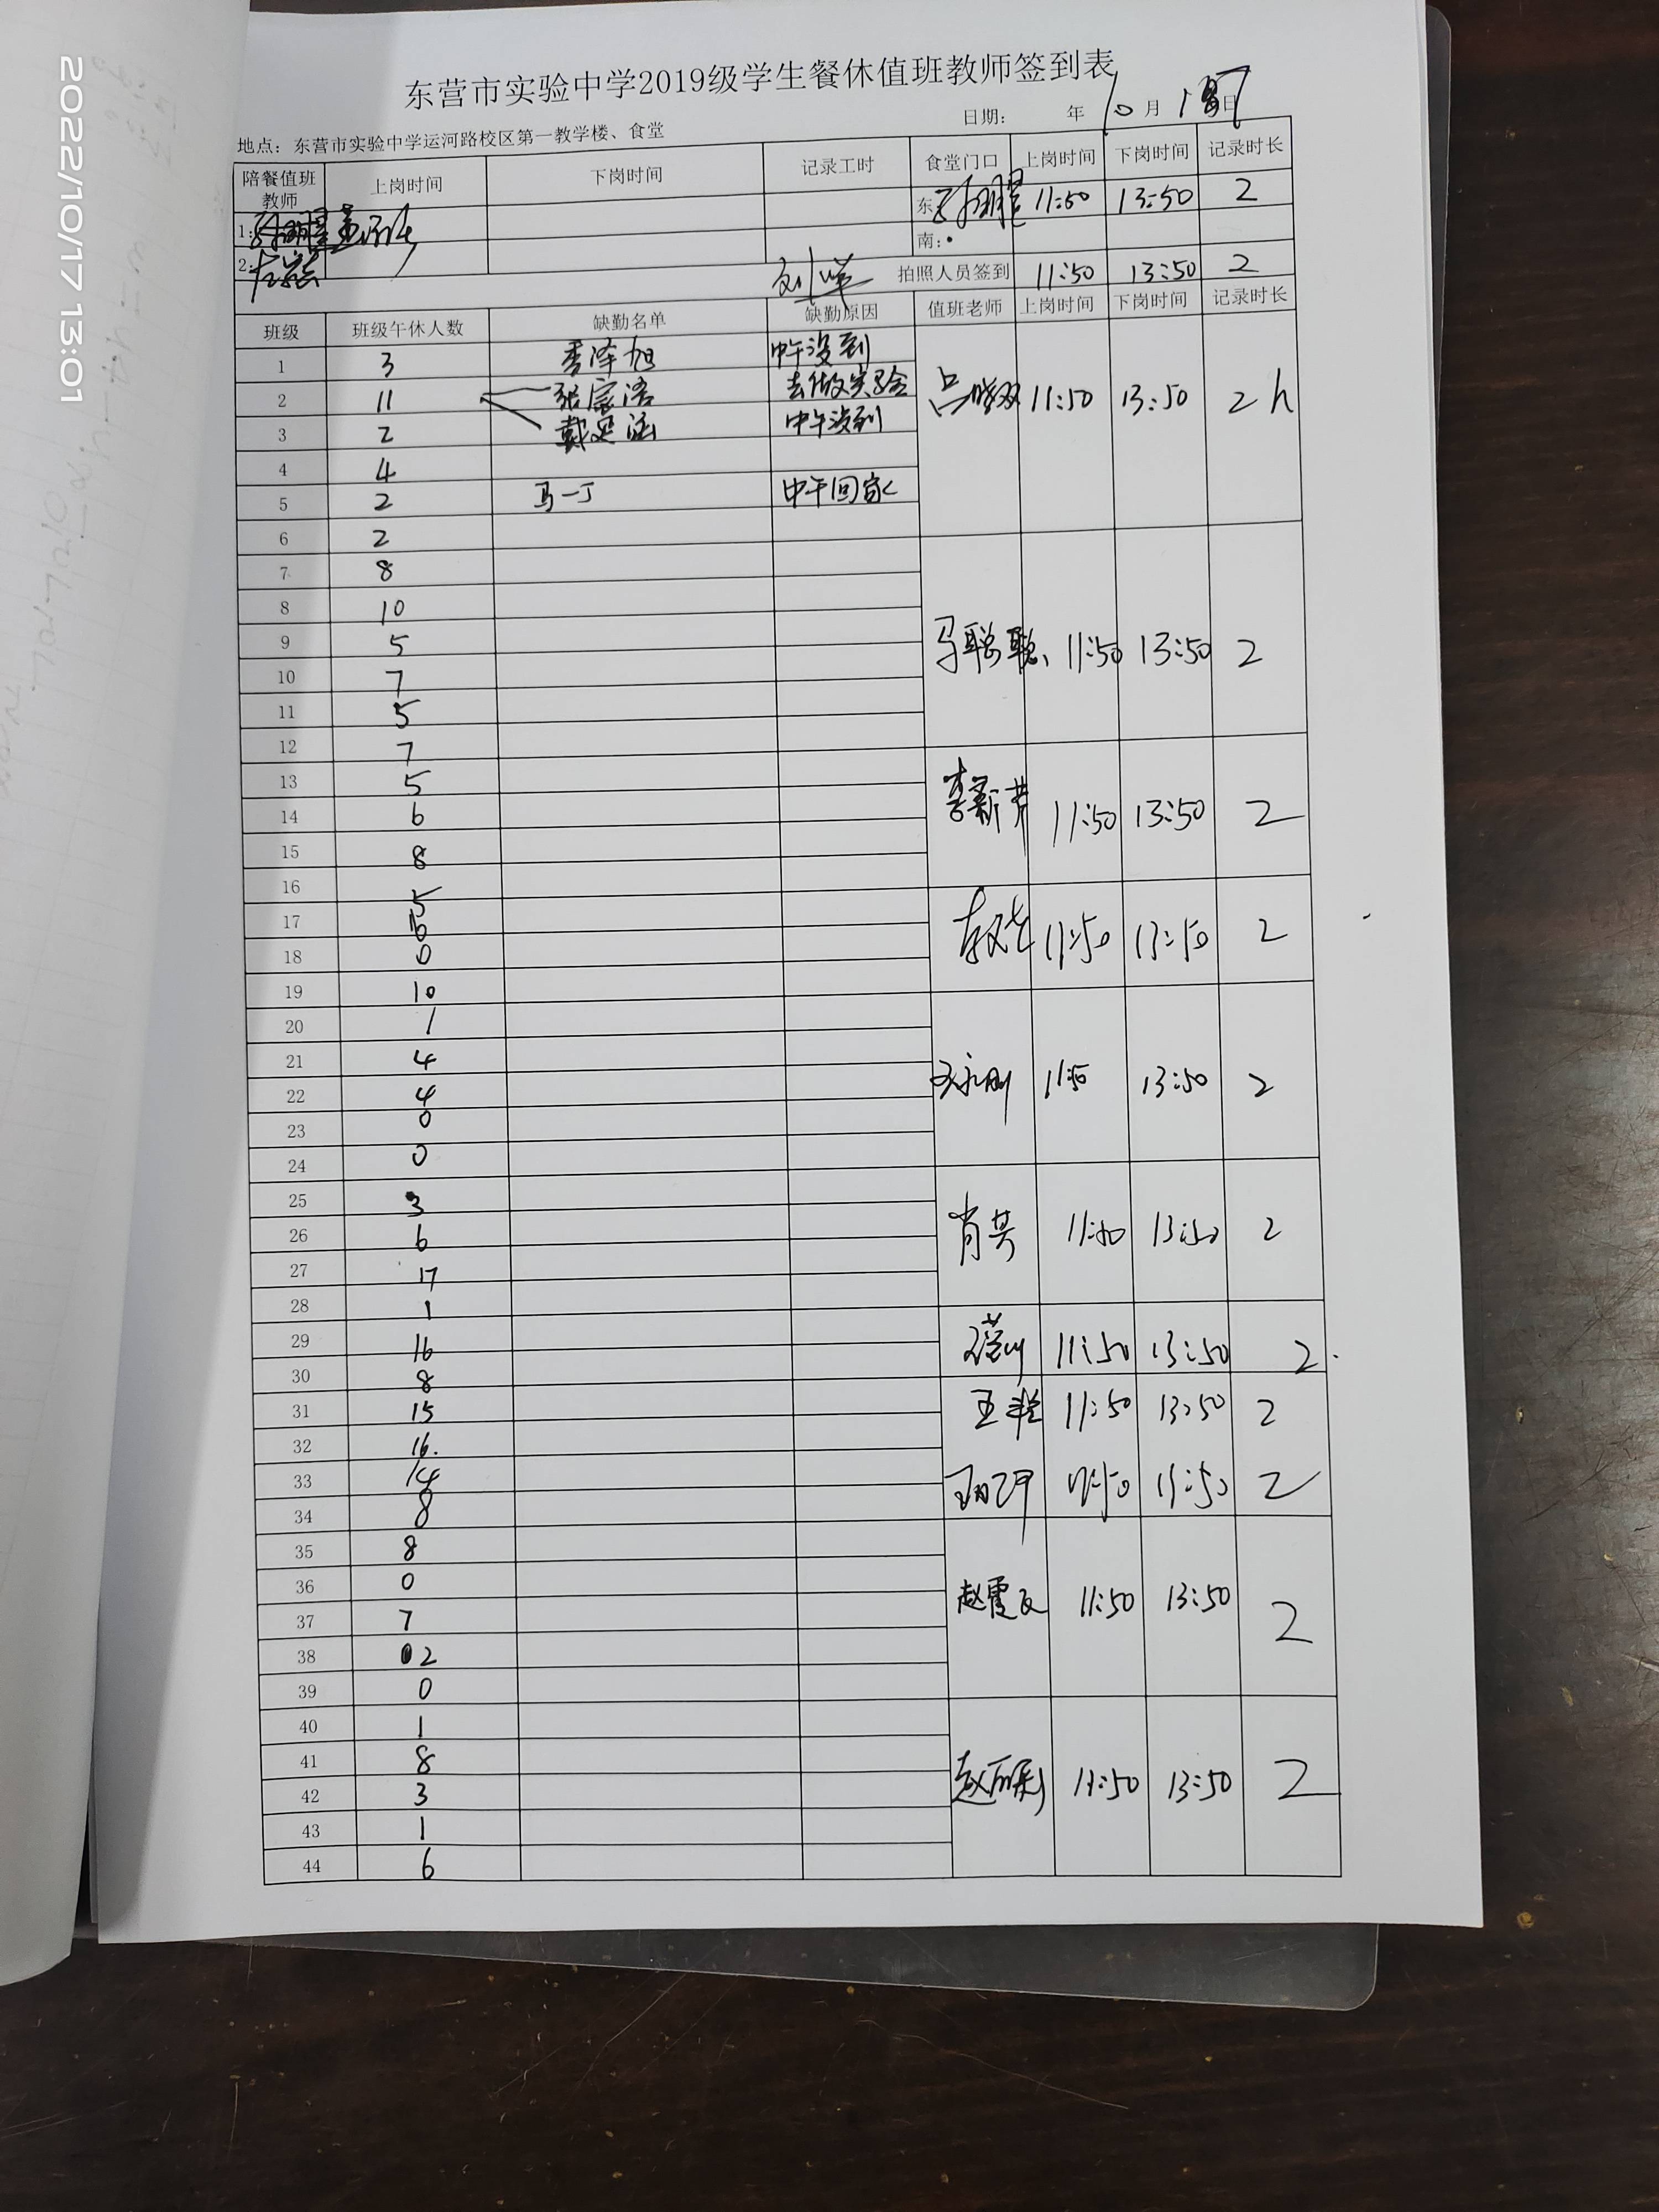 2022/10/17 13:01
东营市实验中学2019级学生餐休值班教师签到表
日期: 年 10 月 17 日
地点: 东营市实验中学运河路校区第一教学楼、食堂
陪餐值班教师 上岗时间 下岗时间 记录工时 食堂门口 上岗时间 下岗时间 记录时长
1: 东: 11:50 13:50 2
2: 南:
拍照人员签到 11:50 13:50 2
班级 班级午休人数 缺勤名单 缺勤原因 值班老师 上岗时间 下岗时间 记录时长
1 3 李泽旭 中午没到
2 11 张宸浯 去做实验 11:50 13:50 2h
3 2 戴 涵 中午没到
4 4
5 2 马一丁 中午回家
6 2
7 8
8 10
9 5 马聪聪 11:50 13:50 2
10 7
11 5
12 7
13 5
14 6 李新 11:50 13:50 2
15 8
16 5
17 6 11:50 13:50 2
18 0
19 10
20 1
21 4
22 4 11:50 13:50 2
23 0
24 0
25 3
26 6 肖英 11:50 13:50 2
27 17
28 1
29 16 11:50 13:50 2
30 8
31 15 王 11:50 13:50 2
32 16.
33 14 11:50 13:50 2
34 8
35 8
36 0 赵霞 11:50 13:50 2
37 7
38 2
39 0
40 1
41 8
42 3 赵 11:50 13:50 2
43 1
44 6